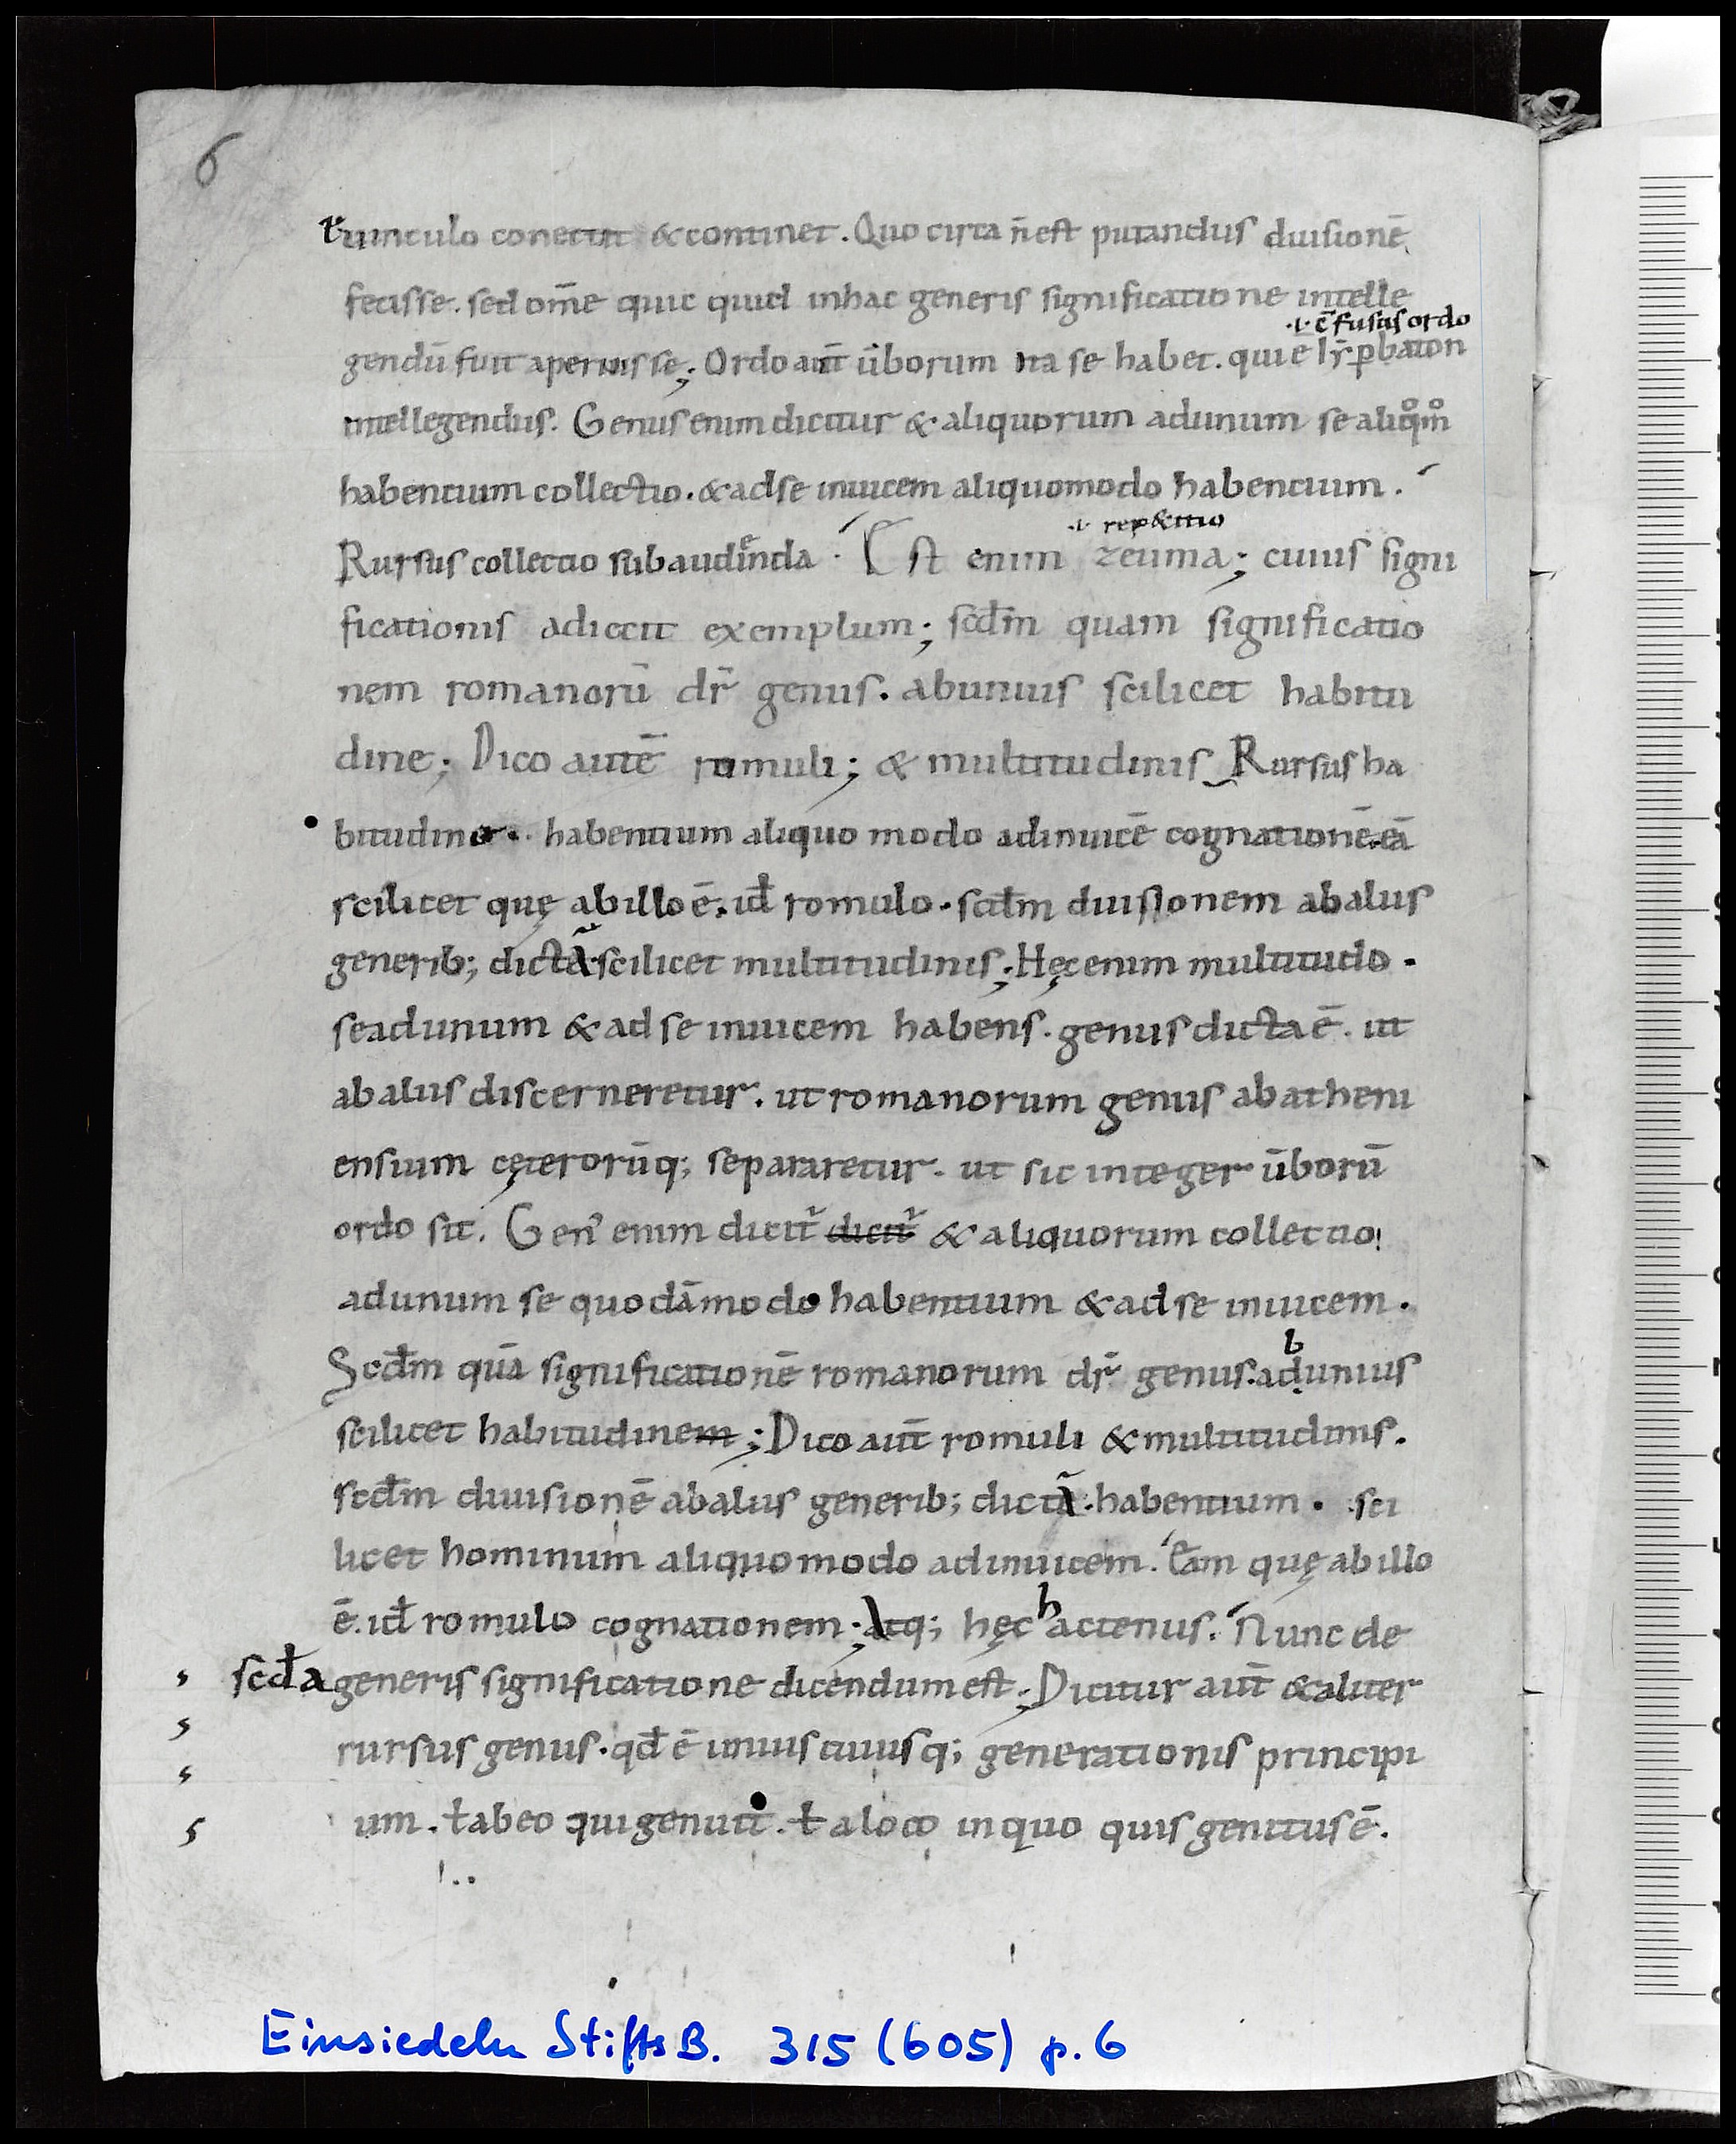 6
uinculo conectit & continet. Quo circa n̄ est putandus diuisionē
fecisse. sed om̄e quic quid inhac generis significatione intelle
.i. c̄fusus ordo
gendū fuit aperuisse; Ordo aūt ūborum ita se habet. qui ē hyꝑbaton
intellegendus. Genus enim dicitur & aliquorum adunum se aliqͦmͦ
habentium collectio. & adse inuicem aliquomodo habentium.
.i. rep&itio
Rursus collectio subaudienda. Est enim zeuma; cuius signi
ficationis adiecit exemplum; scd̄m quam significatio
nem romanorū dr̄ genus. abunius scilicet habitu
dine; Dico autē romuli; & multitudinis Rursus ha
bitudine. habentium aliquo modo adinuicē cognationē. eā
scilicet quę abillo ē. id̄ romulo. scd̄m diuisionem abalus
generib; dictā scilicet multitudinis; Hęc enim multitudo.
seadunum & ad se inuicem habens. genus dicta ē. ut
abaliis discerneretur. ut romanorum genus ab atheni
ensium cęterorūq; separaretur. ut sic integer ūborū
ordo sit. Gen᾽ enim dicit᷑ dicit᷑ & aliquorum collectio
adunum se quodāmodo habentium & adse inuicem.
b
Scd̄m quā significationē romanorum dr̄ genus. adunius
scilicet habitudinem; Dico aūt romuli & multitudinis.
scd̄m diuisionē abaliis generib; dictā. habentium. sci
licet hominum aliquomodo adinuicem. Eam quę abillo
ē. id̄ romulo cognationem; atq; hęc hactenus. Nunc de
scd̄a generis significatione dicendum est; Dicitur aūt & aliter
rursus genus. qd̄ ē unius cuiusq; generationis principi
um. ł abeo qui genuit. ł aloco inquo quis genitus ē.
Einsiedeln StiftsB. 315 (605) p. 6